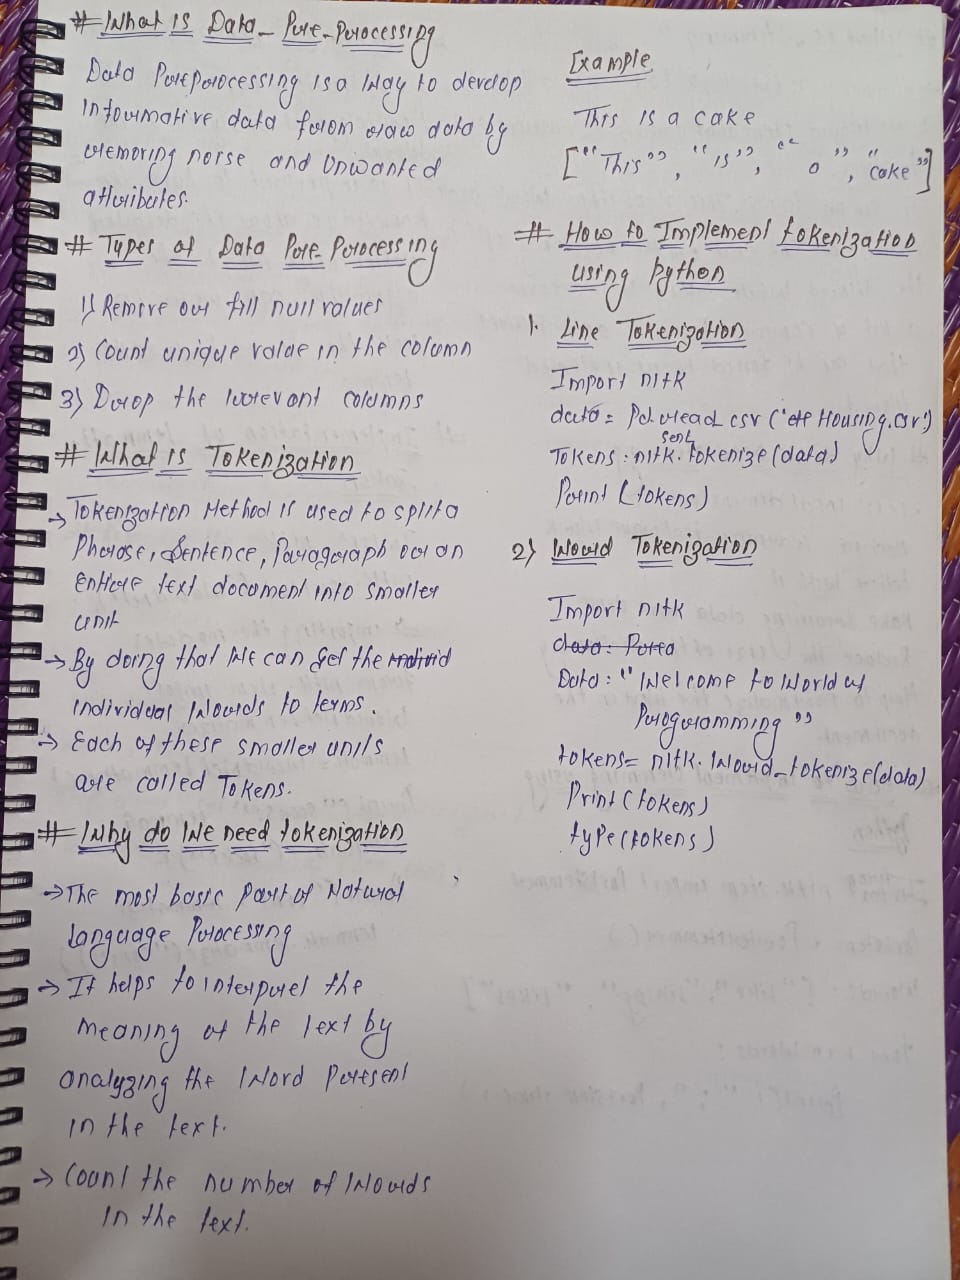 # What is Data_Pre-Processing
Data Preprocessing is a way to develop
informative data from raw data by
removing noise and unwanted
attributes.
# Types of Data Pre-Processing
1) Remove or fill null values
2) Count unique value in the column
3) Drop the irrelevant columns
# What is Tokenization
→ Tokenization Method is used to split a
Phrase, Sentence, Paragraph or an
Entire text document into smaller
unit
→ By doing that we can get the individ
individual words to terms.
→ Each of these smaller units
are called Tokens.
# Why do we need tokenization
→ The most basic part of Natural
Language Processing
→ It helps to interpret the
meaning of the text by
analyzing the word Present
in the text.
→ Count the number of words
in the text.
Example
This is a cake
["This", "is", "a", "cake"]
# How to Implement tokenization
using Python
1. Line Tokenization
Import nltk
data = Pd.read csv ("Housing.csv")
Tokens: nltk.sent tokenize(data)
Print (tokens)
2) Word Tokenization
Import nltk
data:
Data: "Welcome to World of
Programming"
tokens= nltk.word_tokenize(data)
Print (tokens)
type(tokens)